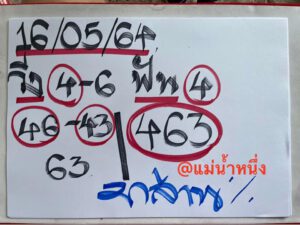 16/05/64
วิ่ง 4-6 ฟัน 4
46-43 463
63
@แม่น้ำหนึ่ง